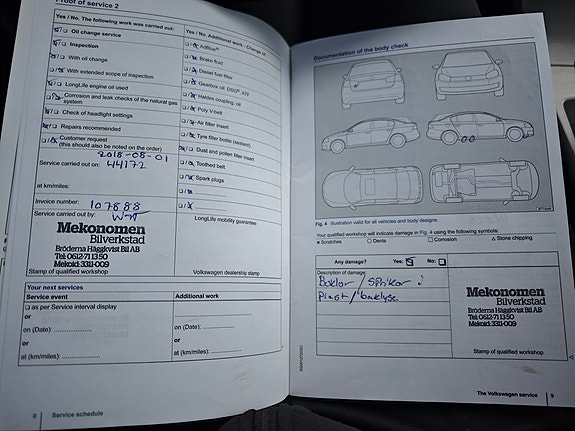 Proof of service 2
Yes / No. The following work was carried out:
Oil change service
Inspection
With oil change
With extended scope of inspection
LongLife engine oil used
Corrosion and leak checks of the natural gas
system
Check of headlight settings
Repairs recommended
Customer request
(this should also be noted on the order)
2018-08-01
Service carried out on: 44172
at km/miles:
Invoice number: 107888
Service carried out by:
Mekonomen
Bilverkstad
Bröderna Häggkvist Bil AB
Tel: 0612-71 13 50
Mekoid: 3311-009
Stamp of qualified workshop
Yes / No. Additional work - Change of
AdBlue®
Brake fluid
Diesel fuel filter
Gearbox oil: DSG®, ATF
Haldex coupling: oil
Poly V-belt
Air filter insert
Tyre filler bottle (sealant)
Dust and pollen filter insert
Toothed belt
Spark plugs
LongLife mobility guarantee:
Volkswagen dealership stamp
Your next services
Service event
Additional work
as per Service interval display
or
on (Date):
or
at (km/miles):
on (Date):
or
at (km/miles):
8 Service schedule
Documentation of the body check
Fig. 4 Illustration valid for all vehicles and body designs.
Your qualified workshop will indicate damage in Fig. 4 using the following symbols:
× Scratches ○ Dents □ Corrosion △ Stone chipping
Any damage? Yes: No:
Description of damage:
Bucklor / Sprickor i
Plast / baklyse
Mekonomen
Bilverkstad
Bröderna Häggkvist Bil AB
Tel: 0612-71 13 50
Mekoid: 3311-009
Stamp of qualified workshop
The Volkswagen service 9